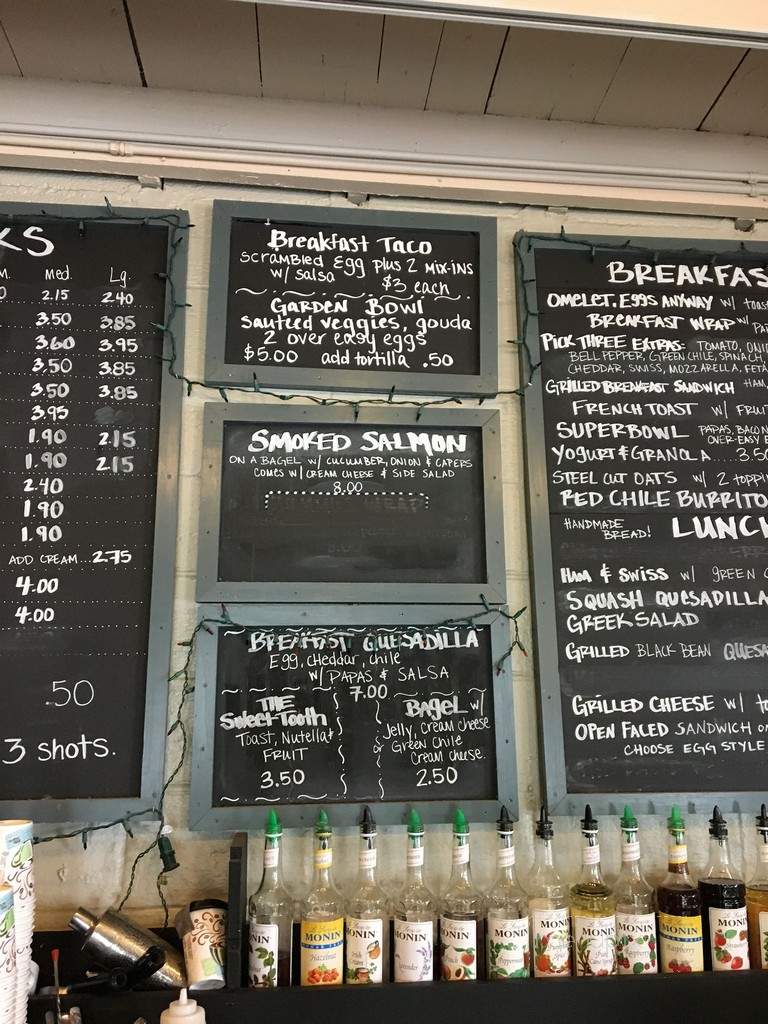 KS
Med. Lg.
2.15 2.40
3.50 3.85
3.60 3.95
3.50 3.85
3.50 3.85
3.95
1.90 2.15
1.90 2.15
2.40
1.90
1.90
ADD CREAM...2.75
4.00
4.00
.50
3 shots.
Breakfast Taco
scrambled Egg plus 2 mix-ins
w/ salsa $3 each
GARDEN BOWL
sautéed veggies, gouda
2 over easy eggs
$5.00 add tortilla .50
SMOKED SALMON
ON A BAGEL W/ CUCUMBER, ONION & CAPERS
COMES W/ CREAM CHEESE & SIDE SALAD
8.00
BREAKFAST QUESADILLA
Egg, cheddar, chile
W/ PAPAS & SALSA
7.00
THE
Sweet Tooth
Toast, Nutella &
FRUIT
3.50
BAGEL w/
Jelly, cream cheese
or Green Chile
Cream cheese.
2.50
BREAKFAS
OMELET, EGGS ANYWAY w/ toas
BREAKFAST WRAP w/
PICK THREE EXTRAS: TOMATO, ONI
BELL PEPPER, GREEN CHILE, SPINACH,
CHEDDAR, SWISS, MOZZARELLA, FETA
GRILLED BREAKFAST SANDWICH HAM,
FRENCH TOAST W/ FRUI
SUPERBOWL PAPAS, BACON
OVER-EASY E
Yogurt & GRANOLA ... 3.50
STEEL CUT OATS w/ 2 toppi
RED CHILE BURRITO
HANDMADE
BREAD!
LUNCH
Ham & Swiss w/ GREEN C
SQUASH QUESADILLA
GREEK SALAD
GRILLED BLACK BEAN QUESA
GRILLED CHEESE W/ to
OPEN FACED SANDWICH on
CHOOSE EGG STYLE
MONIN
MONIN
Hazelnut
MONIN
Irish Cream
MONIN
Lavender
MONIN
Peach
MONIN
Peppermint
MONIN
MONIN
Pure Cane Syrup
MONIN
Raspberry
MONIN
Raspberry
MONIN
Strawberry